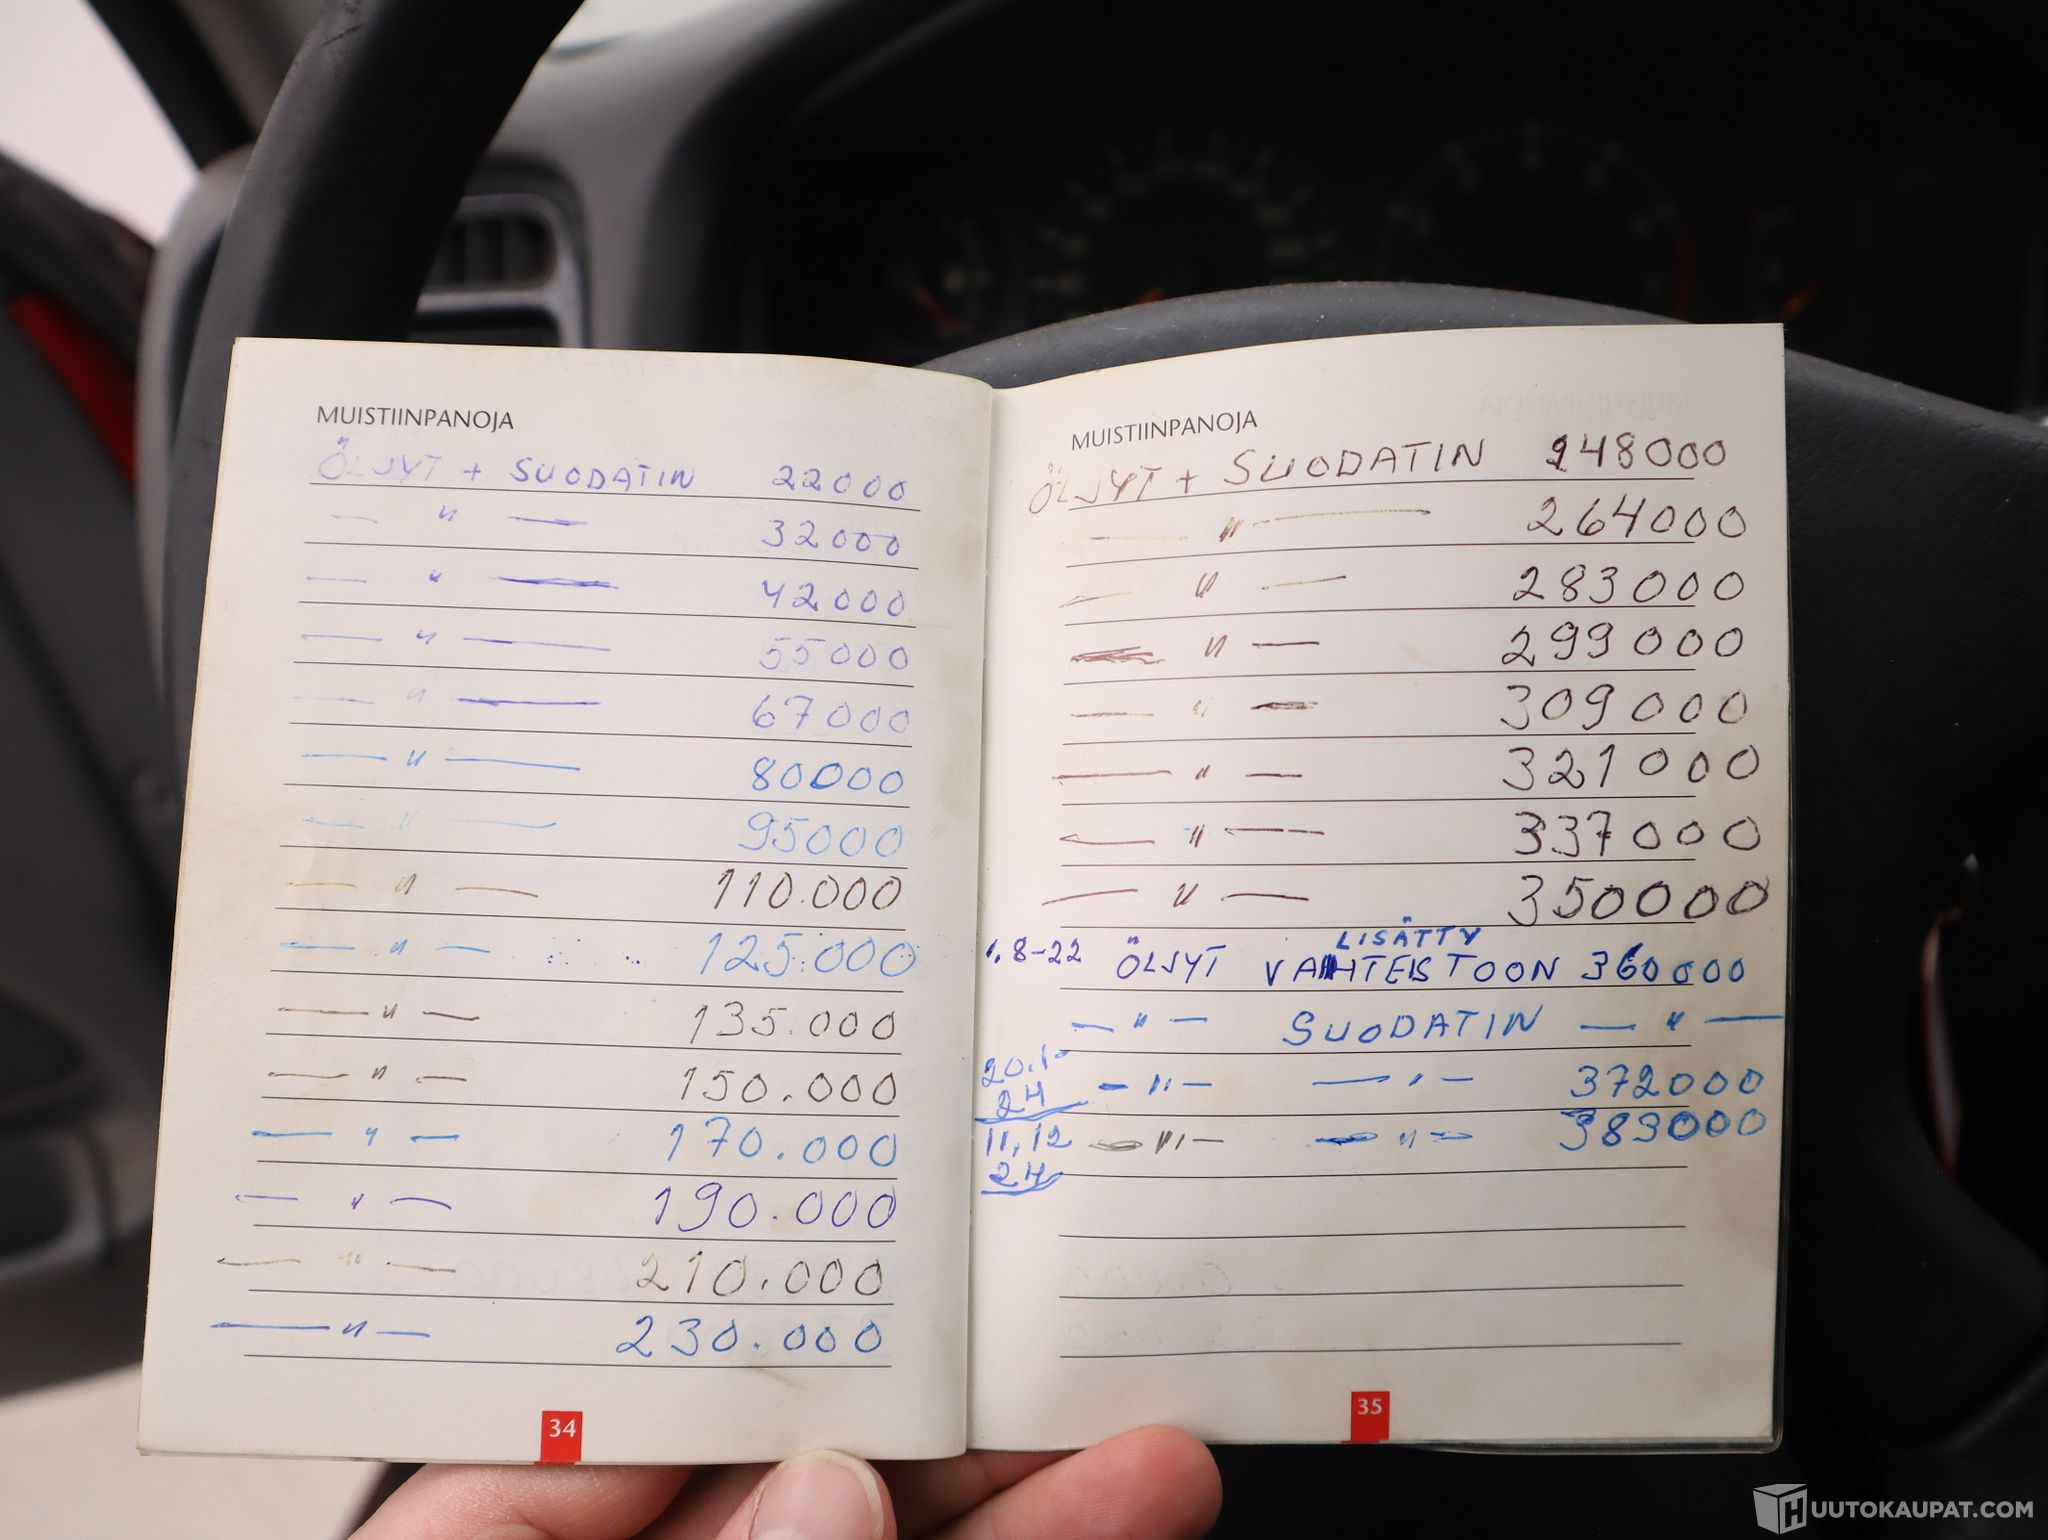 MUISTIINPANOJA
ÖLJYT + SUODATIN 22000
— " — 32000
— " — 42000
— " — 55000
— " — 67000
— " — 80000
— " — 95000
— " — 110.000
— " — 125.000
— " — 135.000
— " — 150.000
— " — 170.000
— " — 190.000
— " — 210.000
— " — 230.000
34
MUISTIINPANOJA
ÖLJYT + SUODATIN 248000
— " — 264000
— " — 283000
— " — 299000
— " — 309000
— " — 321000
— " — 337000
— " — 350000
LISÄTTY
1.8-22 ÖLJYT VAIHTEISTOON 360000
— " — SUODATIN — " —
20.1 24 — " — — " — 372000
11.12 24 — " — — " — 383000
35
HUUTOKAUPAT.COM